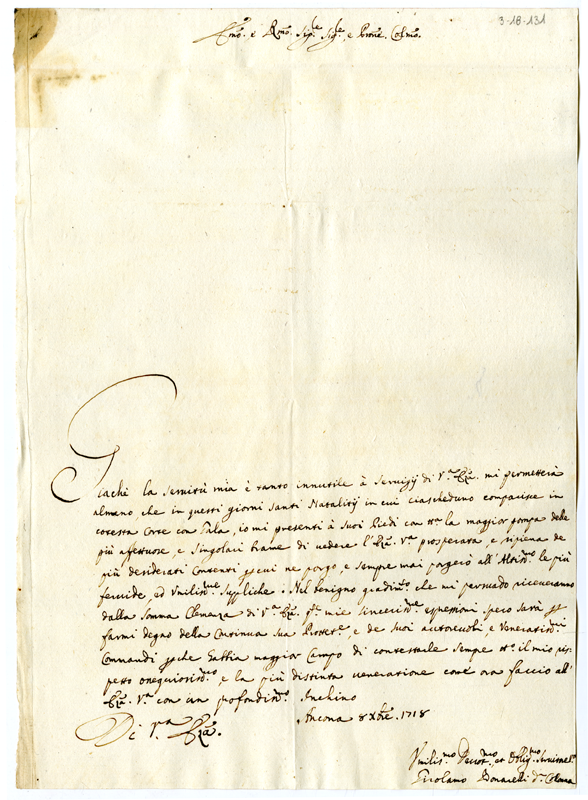 3-18-131
Emo. e Rmo. Sig.re Sig.re e Prone. Colmo.
Giachè la Servitù mia è tanto innutile à Servigij di V.ra Em̃a. mi permetterà
almeno, che in questi giorni Santi Natalitij in cui ciascheduno comparisce in
cotesta Corte con Gala, io mi presenti à Suoi Piedi con tta la maggior pompa delle
più affettuose, e Singolari brame di vedere l'Em̃a. V.ra prosperata, e ripiena de
più desiderati Contenti, per cui ne porgo, e sempre mai porgerò all'Altis.mo le più
fervide, ed Vmilis.me Suppliche. Nel benigno gradim.to che mi persuado riceveranno
dalla Somma Clemenza di V.ra Em̃a. q.te mie sinceris.me espressioni spero sarà per
farmi degno della Continua Sua Protett.e, e de Suoi autorevoli, e Veneratis.mi
Commandi perche habbia maggior Campo di contestarle Sempre tto. il mio ris=
petto ossequiosis.mo e la più distinta veneratione come ora faccio all'
Em̃a. V.ra con un profondis.mo Inchino
Di V.ra Em̃a.
Ancona 8 Xbre. 1718
Vmilis.mo Devot.mo et Oblig.mo Servitore
Girolamo